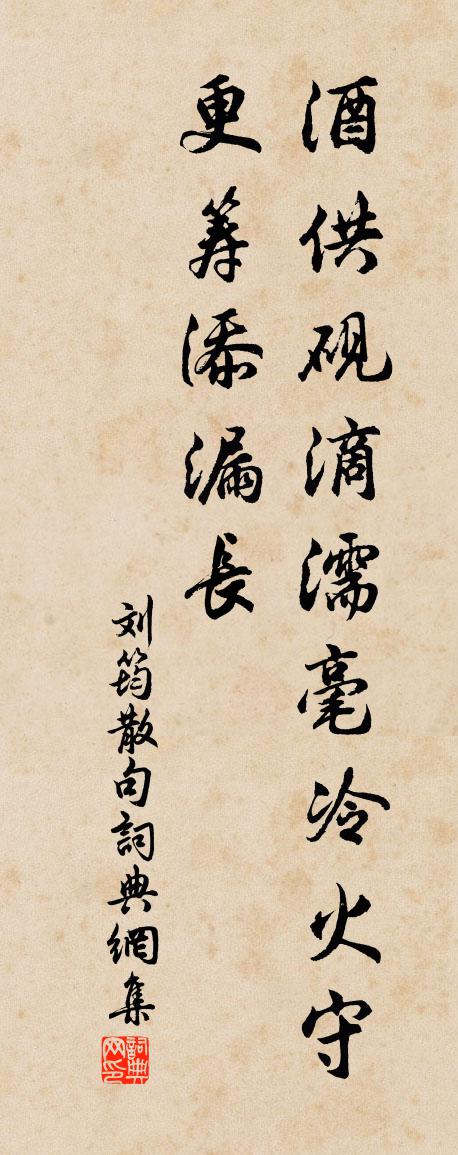 酒供砚滴濡毫冷火守
更筹添漏長
刘筠散句詞典網集
詞典网印